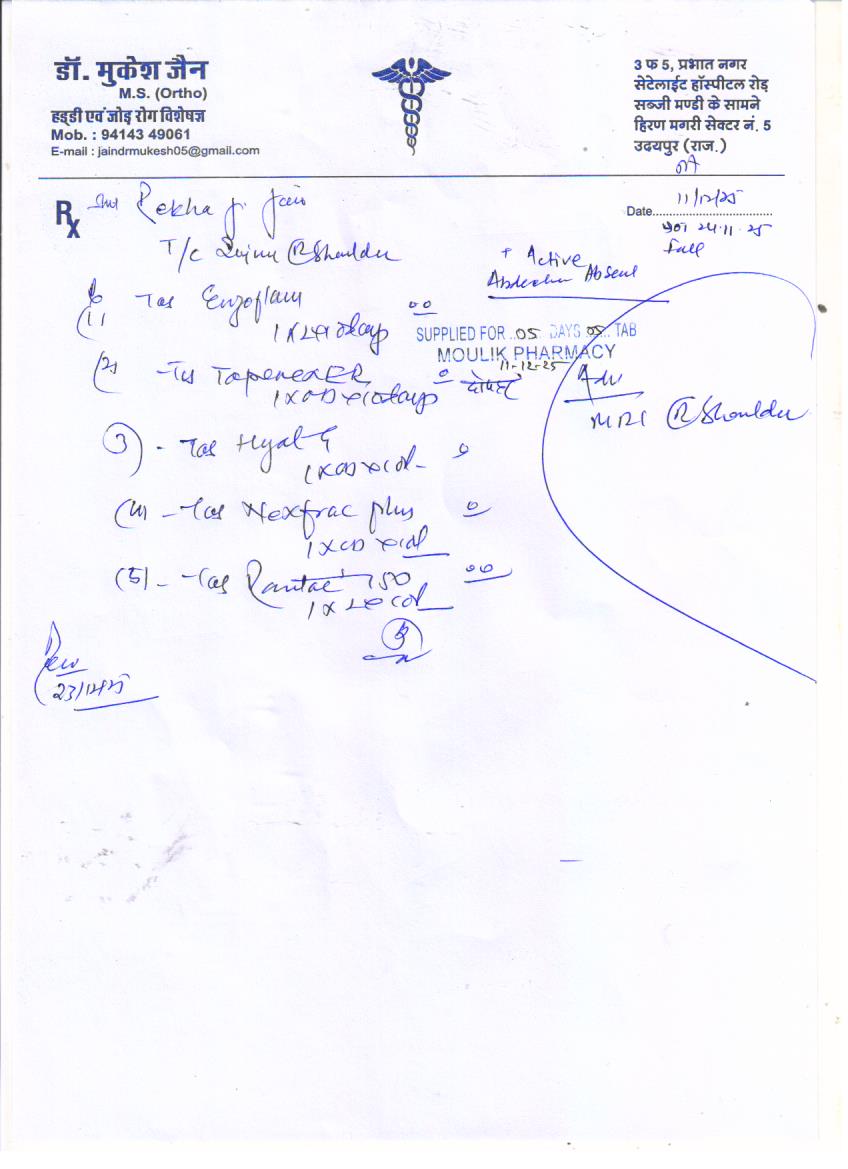 डॉ. मुकेश जैन
M.S. (Ortho)
हड्डी एवं जोड़ रोग विशेषज्ञ
Mob. : 94143 49061
E-mail : jaindrmukesh05@gmail.com
3 फ 5, प्रभात नगर
सेटेलाईट हॉस्पीटल रोड़
सब्जी मण्डी के सामने
हिरण मगरी सेक्टर नं. 5
उदयपुर (राज.)
Rx Rekha Jain
Date 11/12/25
24.11.25
fall
T/c Injury (R) Shoulder
+ Active
Abduction Absent
(1) Tab Enzoflam
SUPPLIED FOR 05 DAYS 05 TAB
MOULIK PHARMACY
11-12-25
(2) - Tab Tapenea ER
1 x OD x 10 days
Adv
MRI (R) Shoulder
(3) - Tab Hyal-G
1 x OD x 10d
(4) - Tab Nexfrac plus
1 x OD x 10d
(5) - Tab Rantac 150
Rev
23/12/25